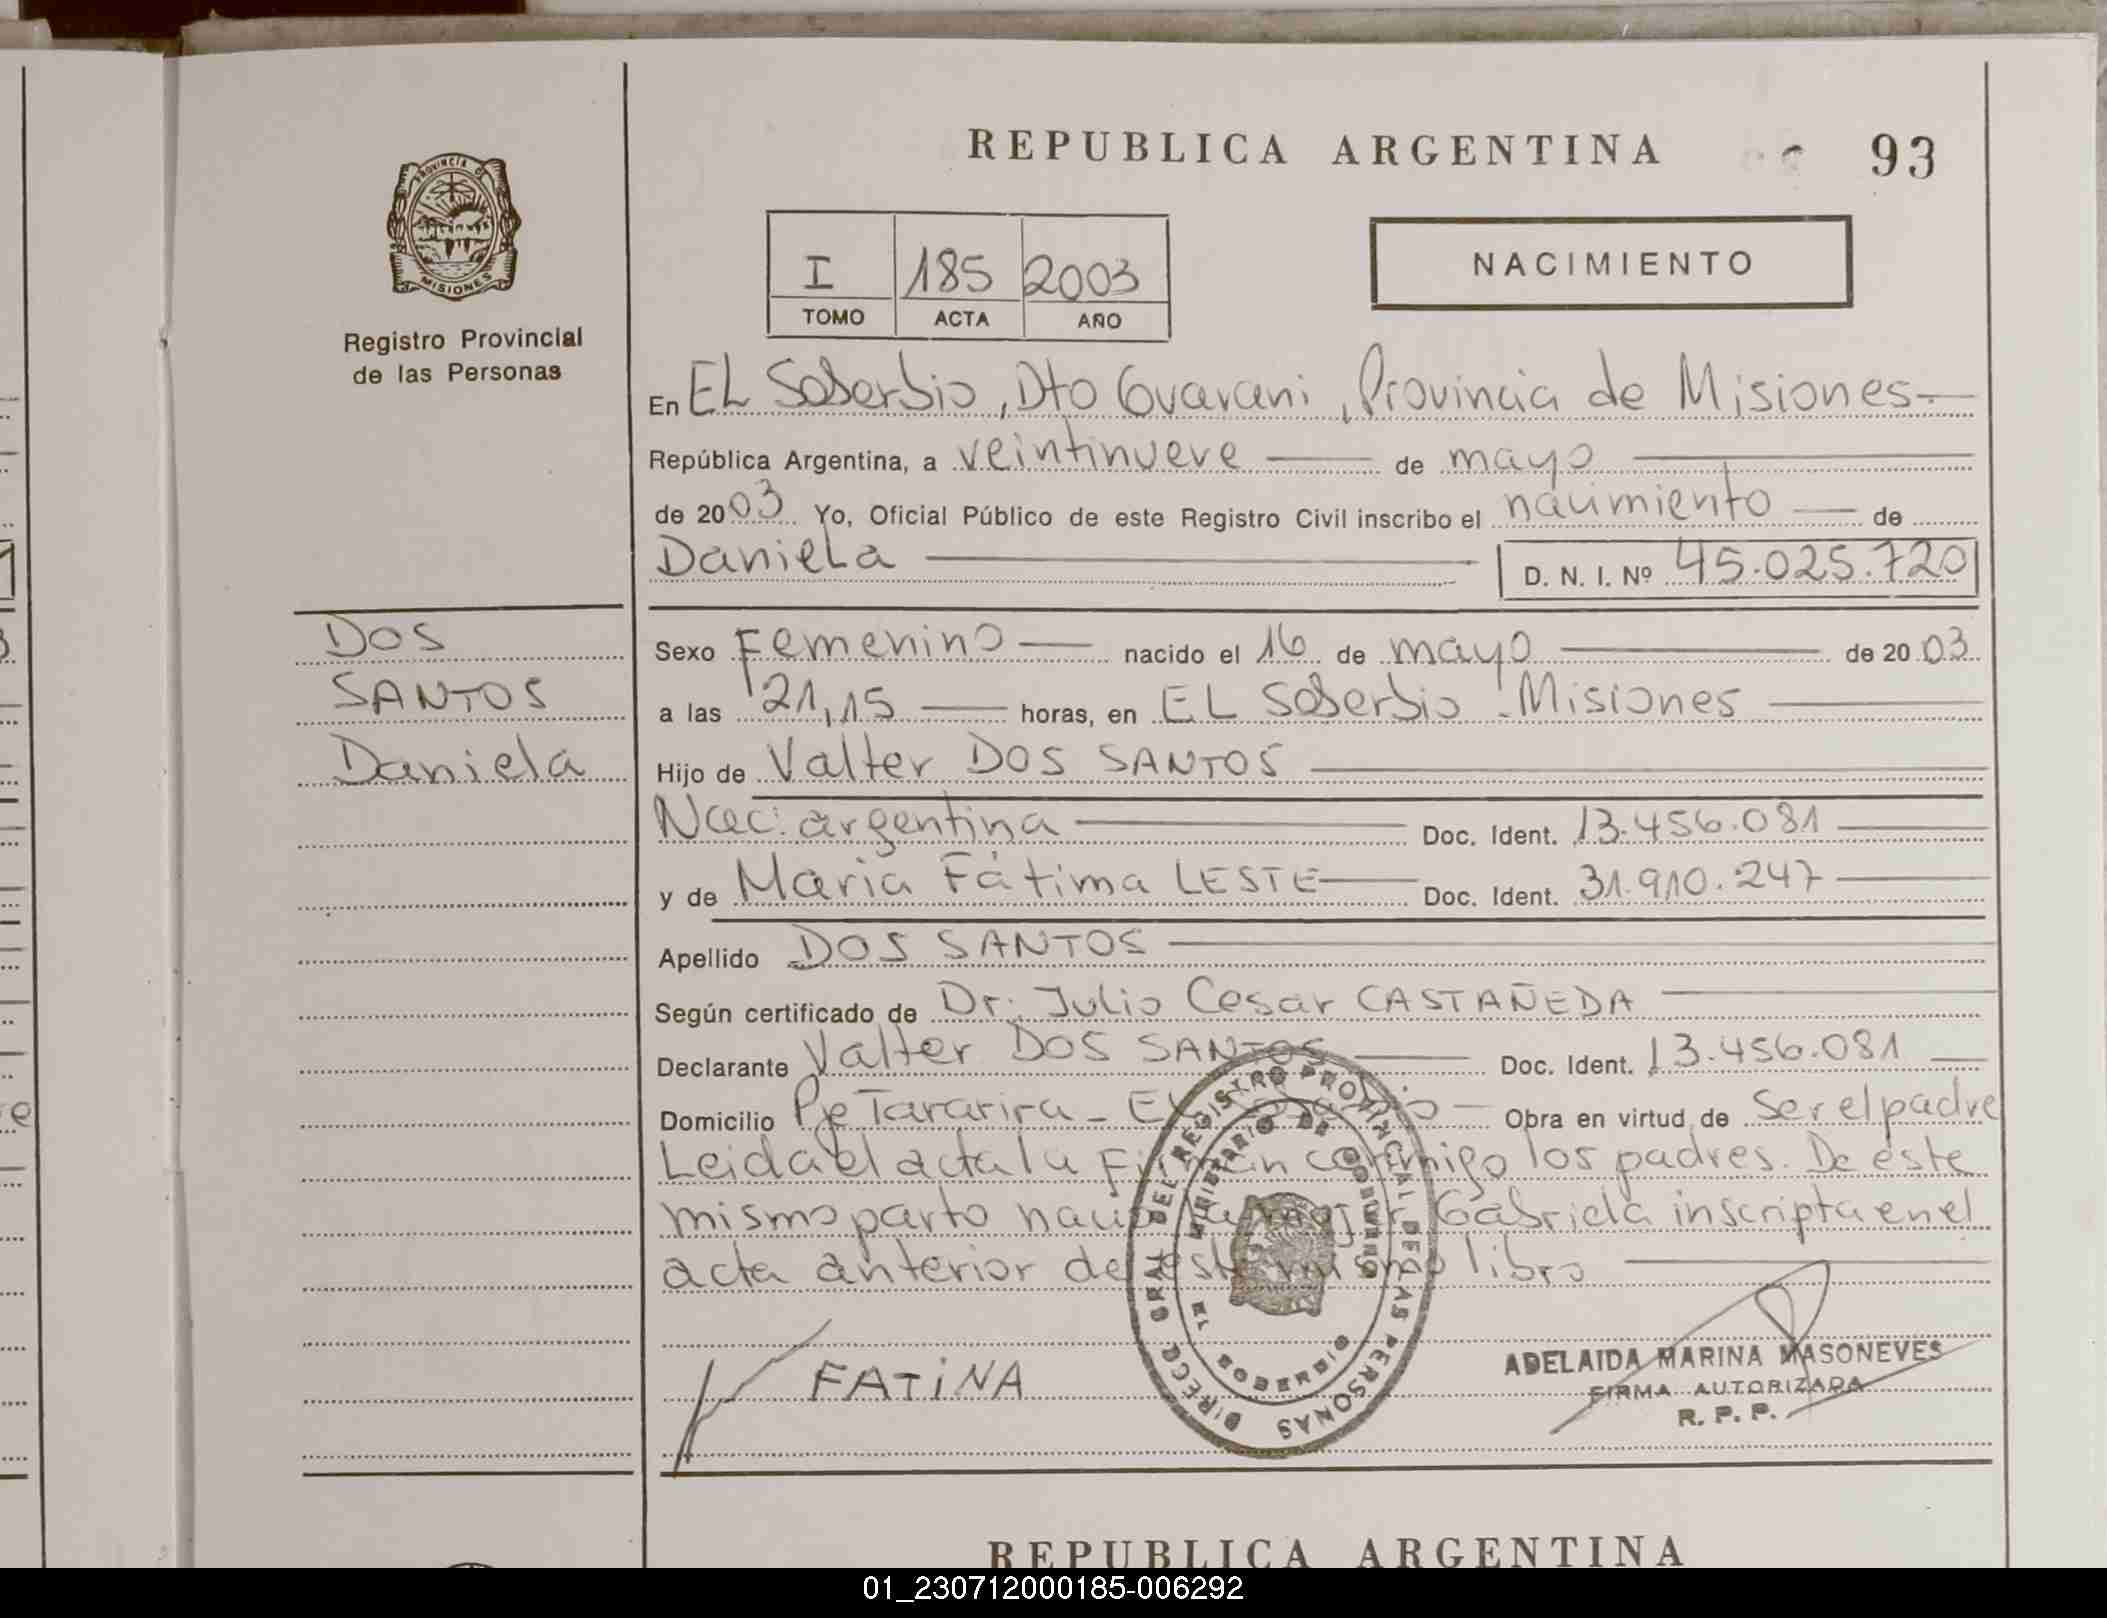 REPUBLICA ARGENTINA
93
PROVINCIA DE MISIONES
Registro Provincial
de las Personas
I 185 2003
TOMO ACTA AÑO
NACIMIENTO
En EL Soberbio, Dto Guarani, Provincia de Misiones
República Argentina, a veintinueve de mayo
de 2003 Yo, Oficial Público de este Registro Civil inscribo el nacimiento de
Daniela D. N. I. Nº 45.025.720
DOS
SANTOS
Daniela
Sexo Femenino nacido el 16 de mayo de 2003
a las 21,15 horas, en EL Soberbio - Misiones
Hijo de Valter DOS SANTOS
Nac: argentina Doc. Ident. 13.456.081
y de Maria Fátima LESTE Doc. Ident. 31.910.247
Apellido DOS SANTOS
Según certificado de Dr. Julio Cesar CASTAÑEDA
Declarante Valter DOS SANTOS Doc. Ident. 13.456.081
Domicilio Pje Tararira - EL Soberbio Obra en virtud de ser el padre
Leida el acta la firman conmigo los padres. De este
mismo parto nacio Gabriela inscripta en el
acta anterior de este mismo libro
FATiNA
DIRECC. GRAL DEL REGISTRO PROVINCIAL DE LAS PERSONAS
MINISTERIO DE GOBIERNO
MISIONES
ADELAIDA MARINA MASONEVES
FIRMA AUTORIZADA
R. P. P.
REPUBLICA ARGENTINA
01_230712000185-006292